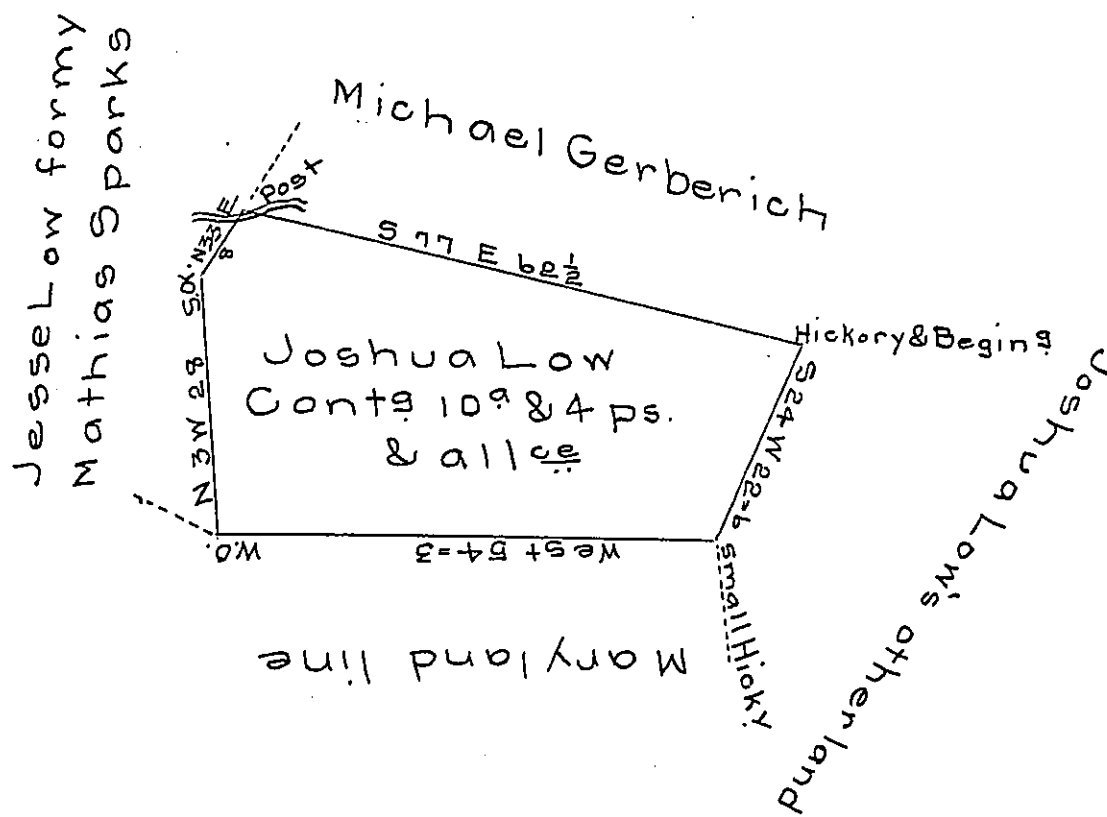 Jesse Low formy
Mathias Sparks
Michael Gerberich
Post
N 33 E
8
S.O.
S 77 E 62½
Hickory & Begin̲g̲
Joshua Low
Contg 10a & 4 ps.
& allce
N 3 W 28
S 24 W 22=6
W.O.
West 54=3
Small Hicky.
Maryland line
Joshua Low's other land